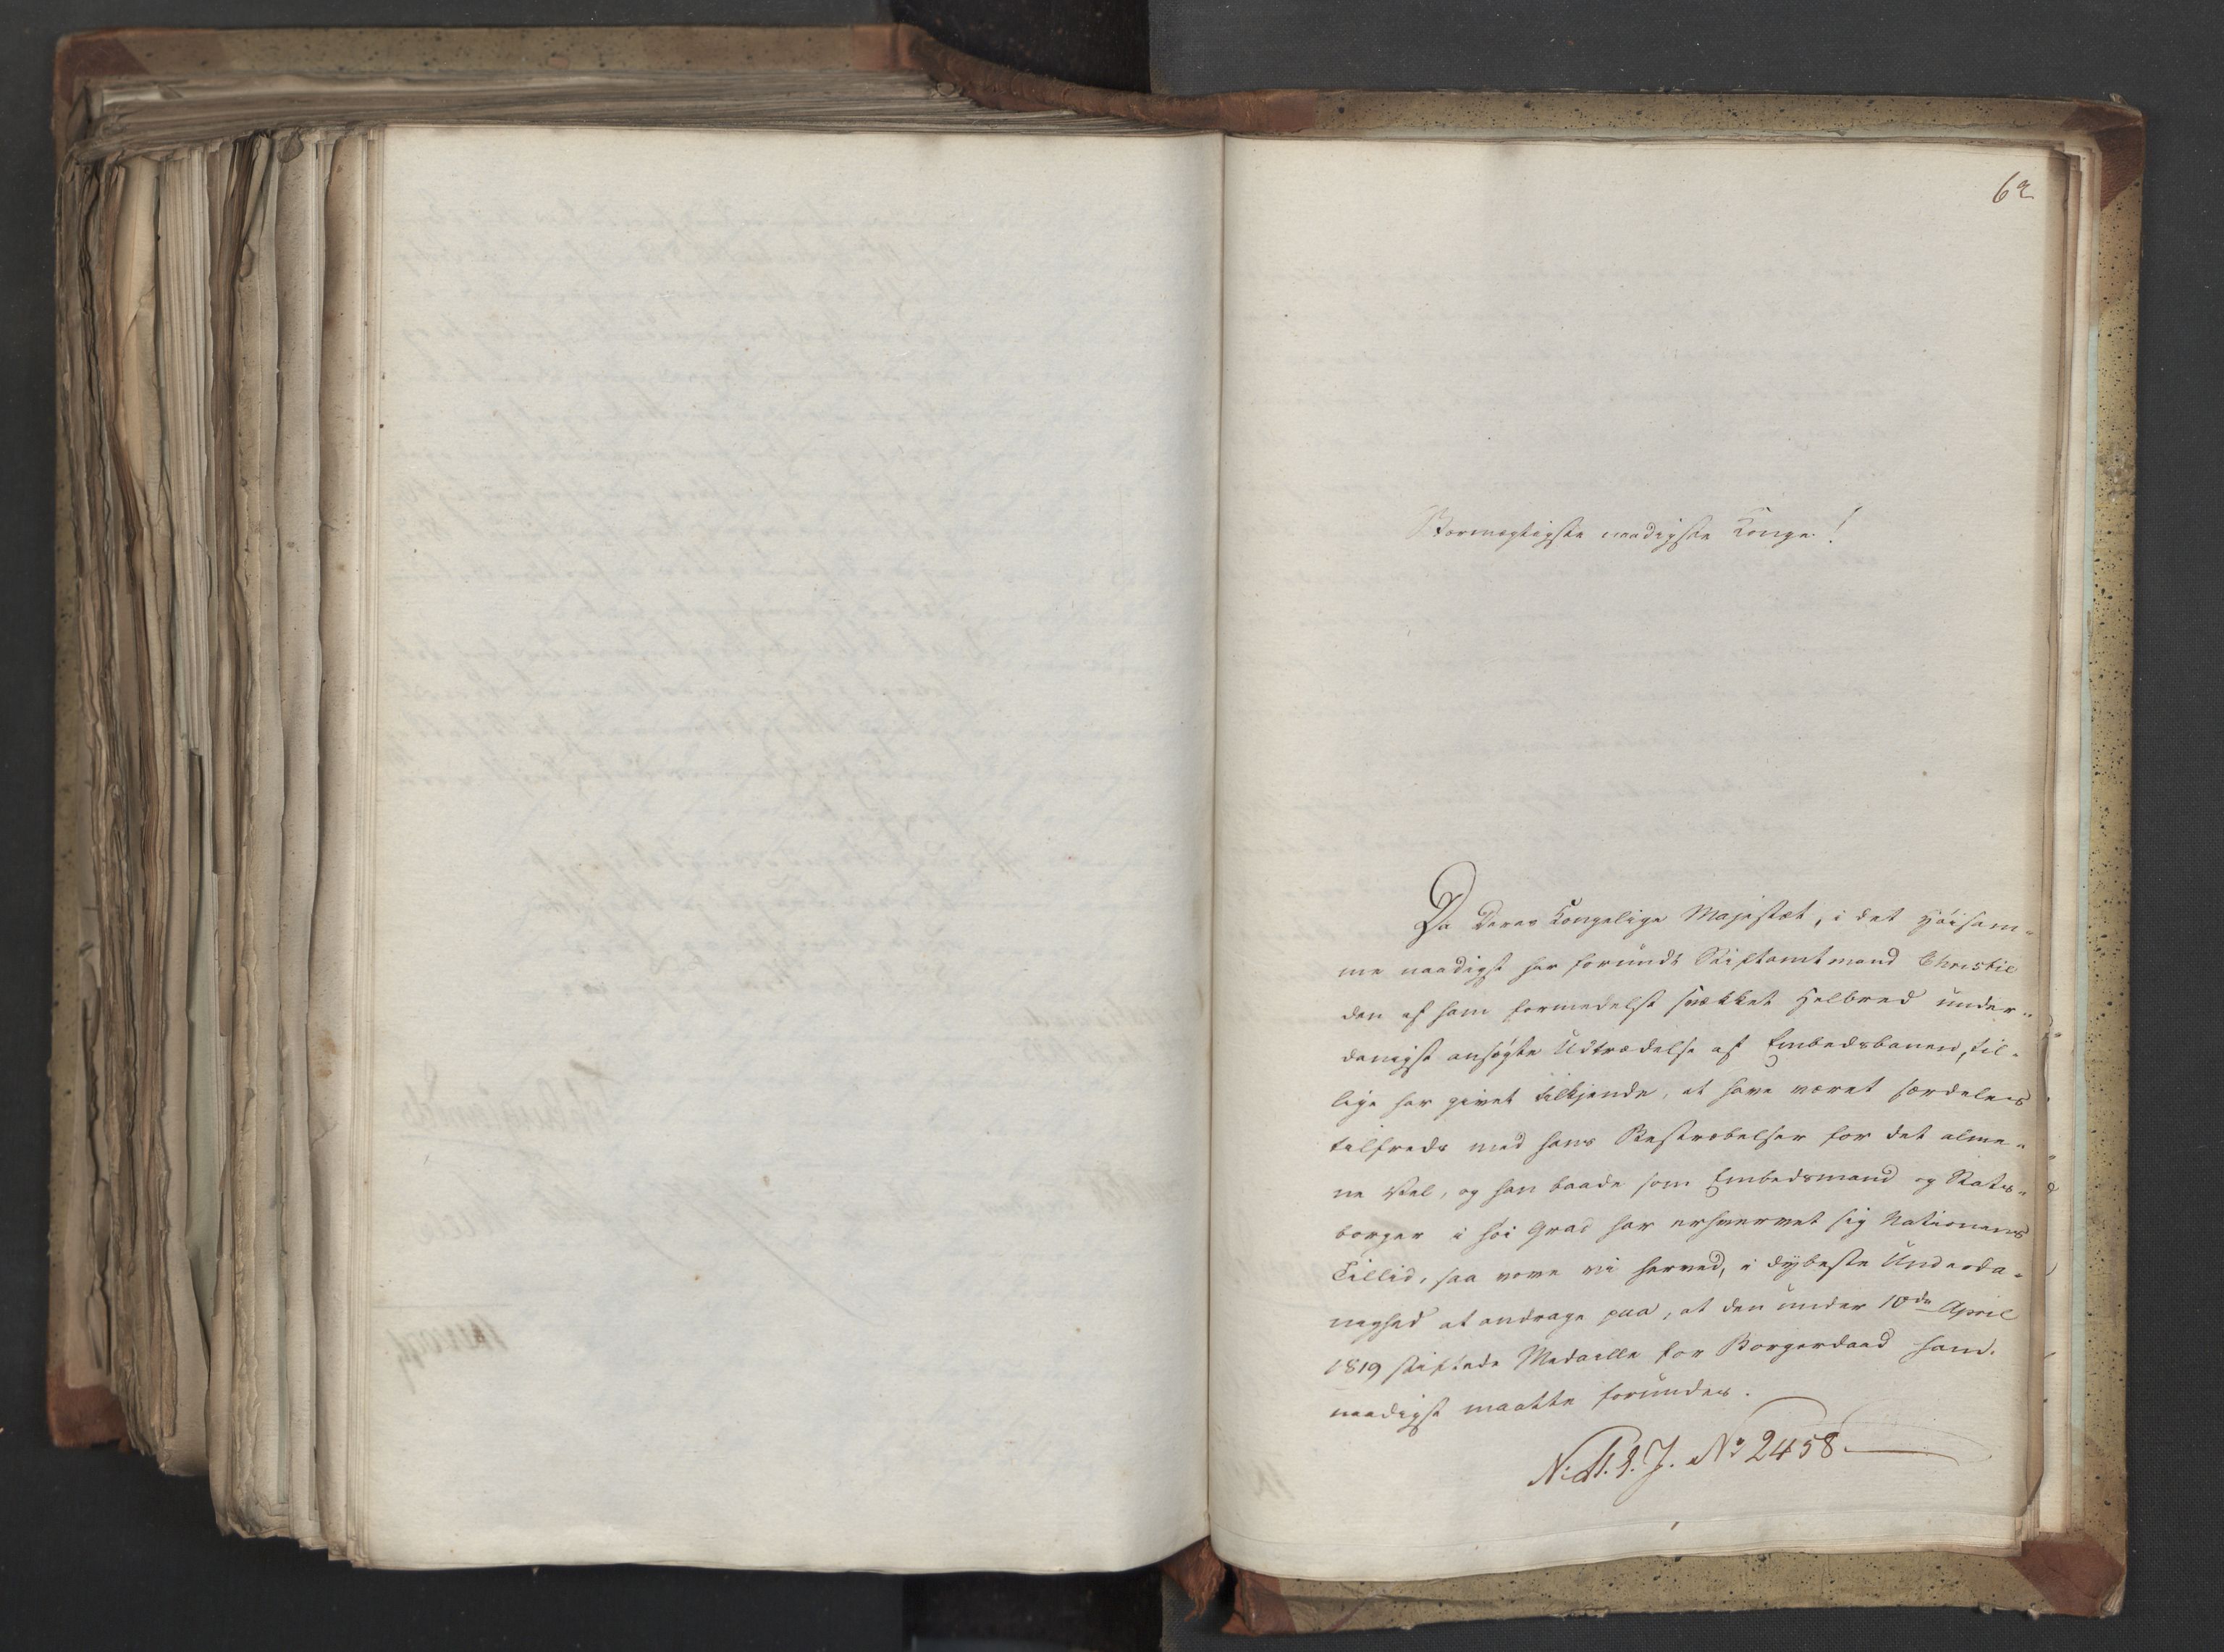 62
Stormægtigste naadigste Konge!
Da Deres Kongelige Majestæt, i det Høisam-
me naadigst har forundt Stiftamtmand Christie
den af ham formedelst svækket Helbred under-
danigst ansøgte Udtrædelse af Embedsbanen, til-
lige har givet tilkjende, at have været særdeles
tilfreds med hans Bestræbelser for det alme-
ne Vel, og han baade som Embedsmand og Stats-
borger i høi Grad har erhvervet sig Nationens
Tillid, saa vove vi herved, i dybeste Underda-
nighed at andrage paa, at den under 10de April
1819 stiftede Medaille for Borgerdaad ham
naadigst maatte forundes.
No 2458